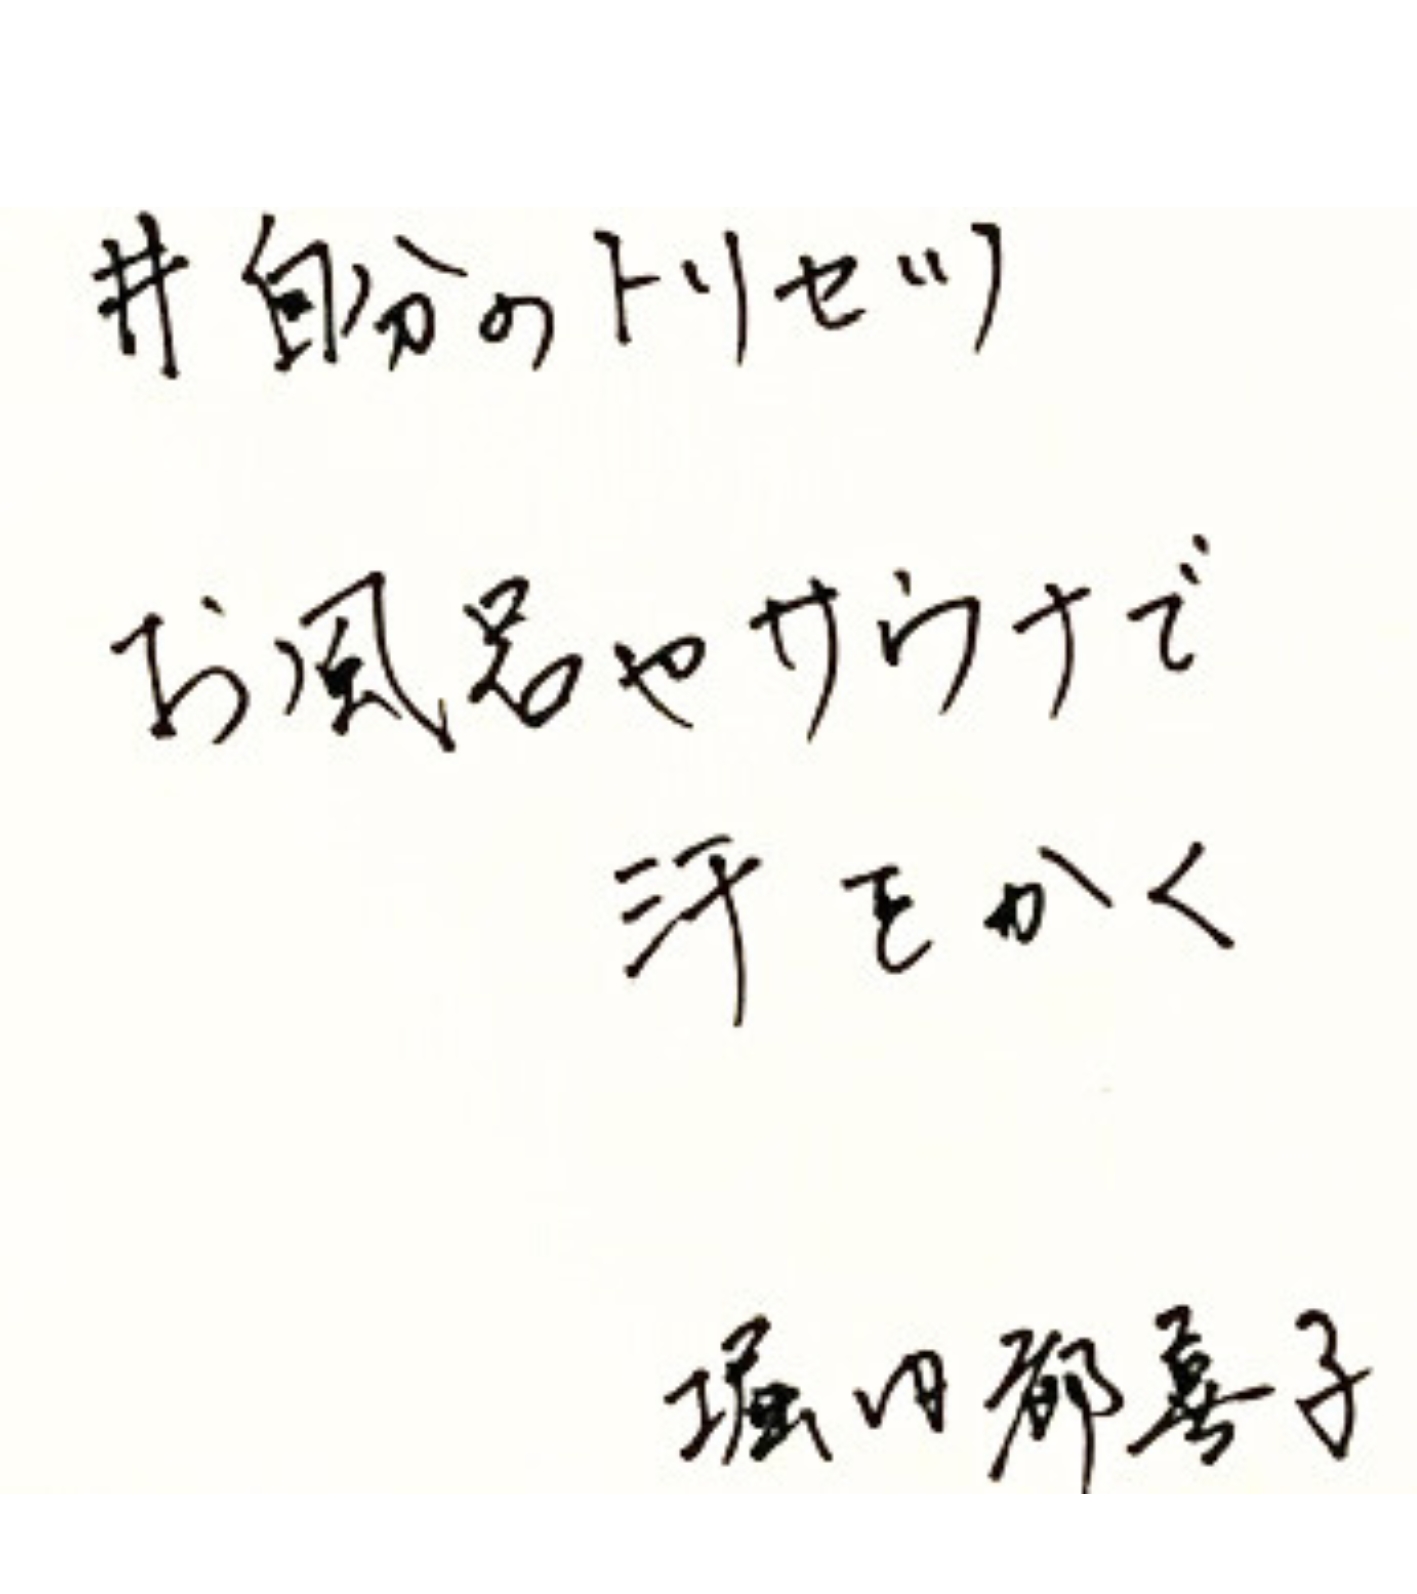 #自分のトリセツ
お風呂やサウナで
汗をかく
堀内都喜子